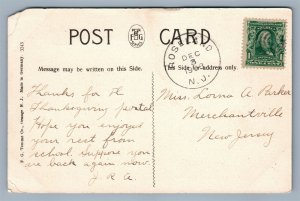 POST CARD
Message may be written on this Side.
This Side for address only.
DEC
N.J.
Thanks for the
Thanksgiving postal
Hope you enjoyed
your rest from
school. Suppose you
are back again now.
J. R. A
Miss. Lorna A. Parker
Merchantville
New Jersey
Made in Germany